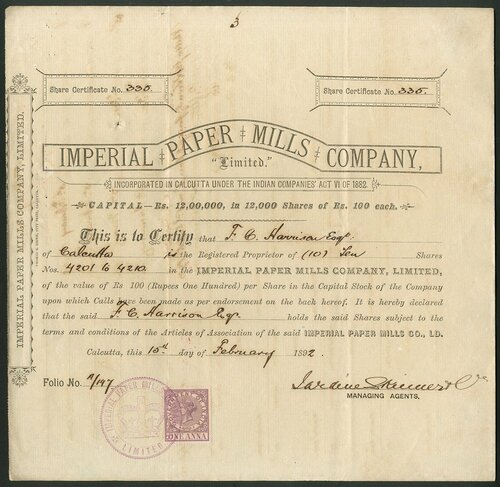 3
Share Certificate No. 335.
Share Certificate No. 335.
IMPERIAL PAPER MILLS COMPANY,
"Limited."
INCORPORATED IN CALCUTTA UNDER THE INDIAN COMPANIES' ACT VI OF 1882.
CAPITAL—Rs. 12,00,000, in 12,000 Shares of Rs. 100 each.
This is to Certify that F. C. Harrison Esqr.
of Calcutta is the Registered Proprietor of (10) Ten Shares
Nos. 4201 to 4210 in the IMPERIAL PAPER MILLS COMPANY, LIMITED,
of the value of Rs 100 (Rupees One Hundred) per Share in the Capital Stock of the Company
upon which Calls have been made as per endorsement on the back hereof. It is hereby declared
that the said F. C. Harrison Esqr. holds the said Shares subject to the
terms and conditions of the Articles of Association of the said IMPERIAL PAPER MILLS CO., LD.
Calcutta, this 10th day of February 1892.
Folio No. 1/147
Jardine Skinner & Co
MANAGING AGENTS.
IMPERIAL PAPER MILLS
LIMITED
ONE ANNA
IMPERIAL PAPER MILLS COMPANY, LIMITED.